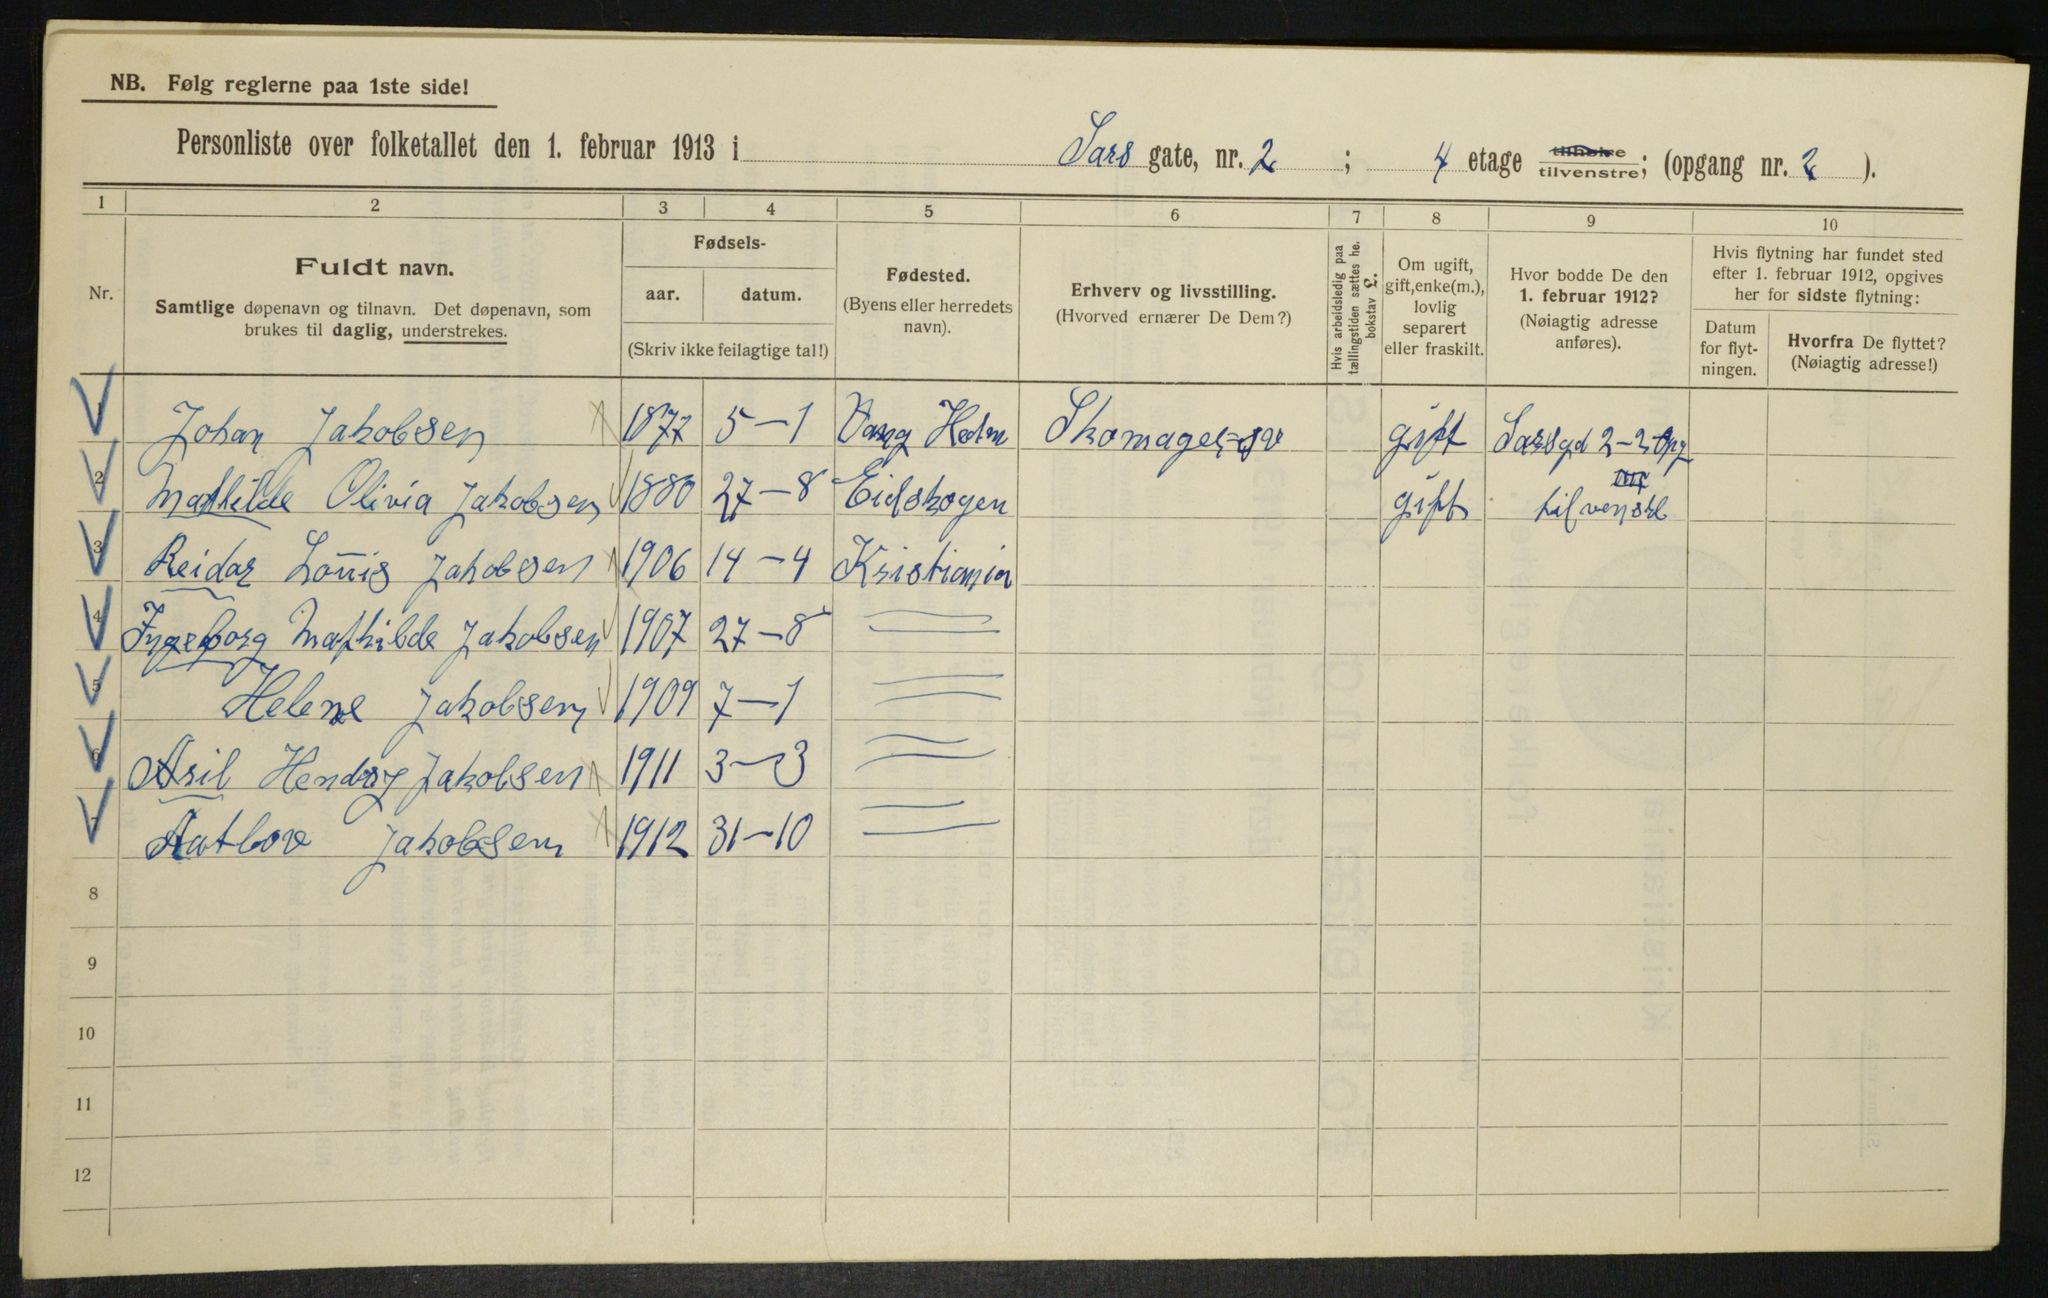 NB. Følg reglerne paa 1ste side!
Personliste over folketallet den 1. februar 1913 i Sars gate, nr. 2 ; 4 etage tilhøire tilvenstre; (opgang nr. 2 ).
1 2 3 4 5 6 7 8 9 10
Nr.
Fuldt navn.
Samtlige døpenavn og tilnavn. Det døpenavn, som
brukes til daglig, understrekes.
Fødsels-
aar. datum.
(Skriv ikke feilagtige tal!)
Fødested.
(Byens eller herredets
navn).
Erhverv og livsstilling.
(Hvorved ernærer De Dem?)
Hvis arbeidsledig paa
tællingstiden sættes he.
bokstav L.
Om ugift,
gift, enke(m.),
lovlig
separert
eller fraskilt.
Hvor bodde De den
1. februar 1912?
(Nøiagtig adresse
anføres).
Hvis flytning har fundet sted
efter 1. februar 1912, opgives
her for sidste flytning:
Datum
for flyt-
ningen.
Hvorfra De flyttet?
(Nøiagtig adresse!)
1 Johan Jakobsen 1877 5-1 Vang Hedm gift Sarsgd 2-2 Opg
2 Mathilde Olivia Jakobsen 1880 27-8 Eidskogen gift tilvenstre
3 Reidar Louis Jakobsen 1906 14-4 Kristiania
4 Ingeborg Mathilde Jakobsen 1907 27-8
5 Helene Jakobsen 1909 7-1
6 Asil Hendry Jakobsen 1911 3-3
7 Jakobsen 1912 31-10
8
9
10
11
12